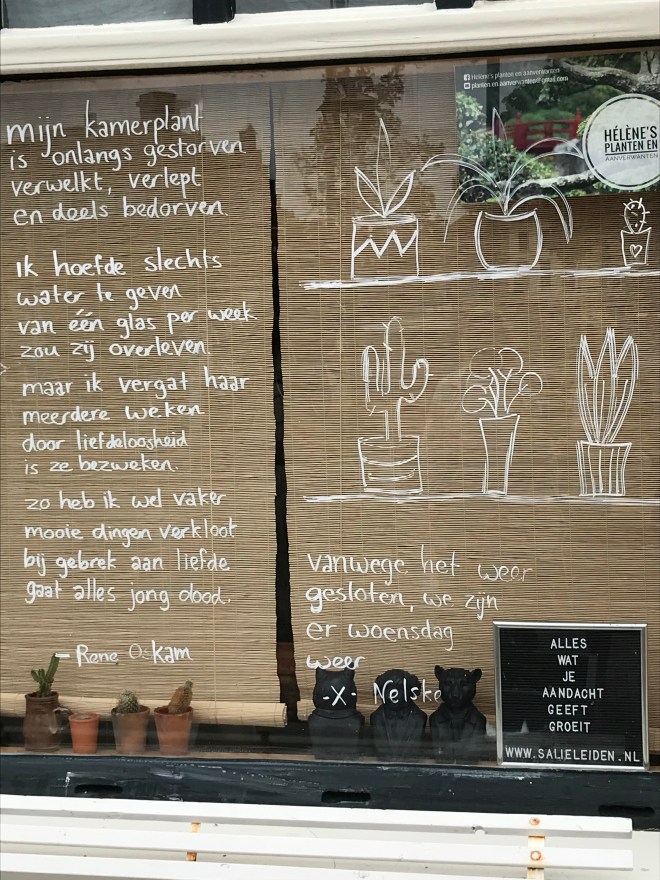 mijn kamerplant
is onlangs gestorven
verwelkt, verlept
en deels bedorven.
ik hoefde slechts
water te geven
van één glas per week
zou zij overleven.
maar ik vergat haar
meerdere weken
door liefdeloosheid
is ze bezweken.
zo heb ik wel vaker
mooie dingen verkloot
bij gebrek aan liefde
gaat alles jong dood.
- Rene Oskam
Hélène's planten en aanverwanten
planten.en.aanverwanten@gmail.com
HÉLÈNE'S
PLANTEN EN
AANVERWANTEN
vanwege het weer
gesloten, we zijn
er woensdag
weer
-X- Nelske
ALLES
WAT
JE
AANDACHT
GEEFT
GROEIT
WWW.SALIELEIDEN.NL